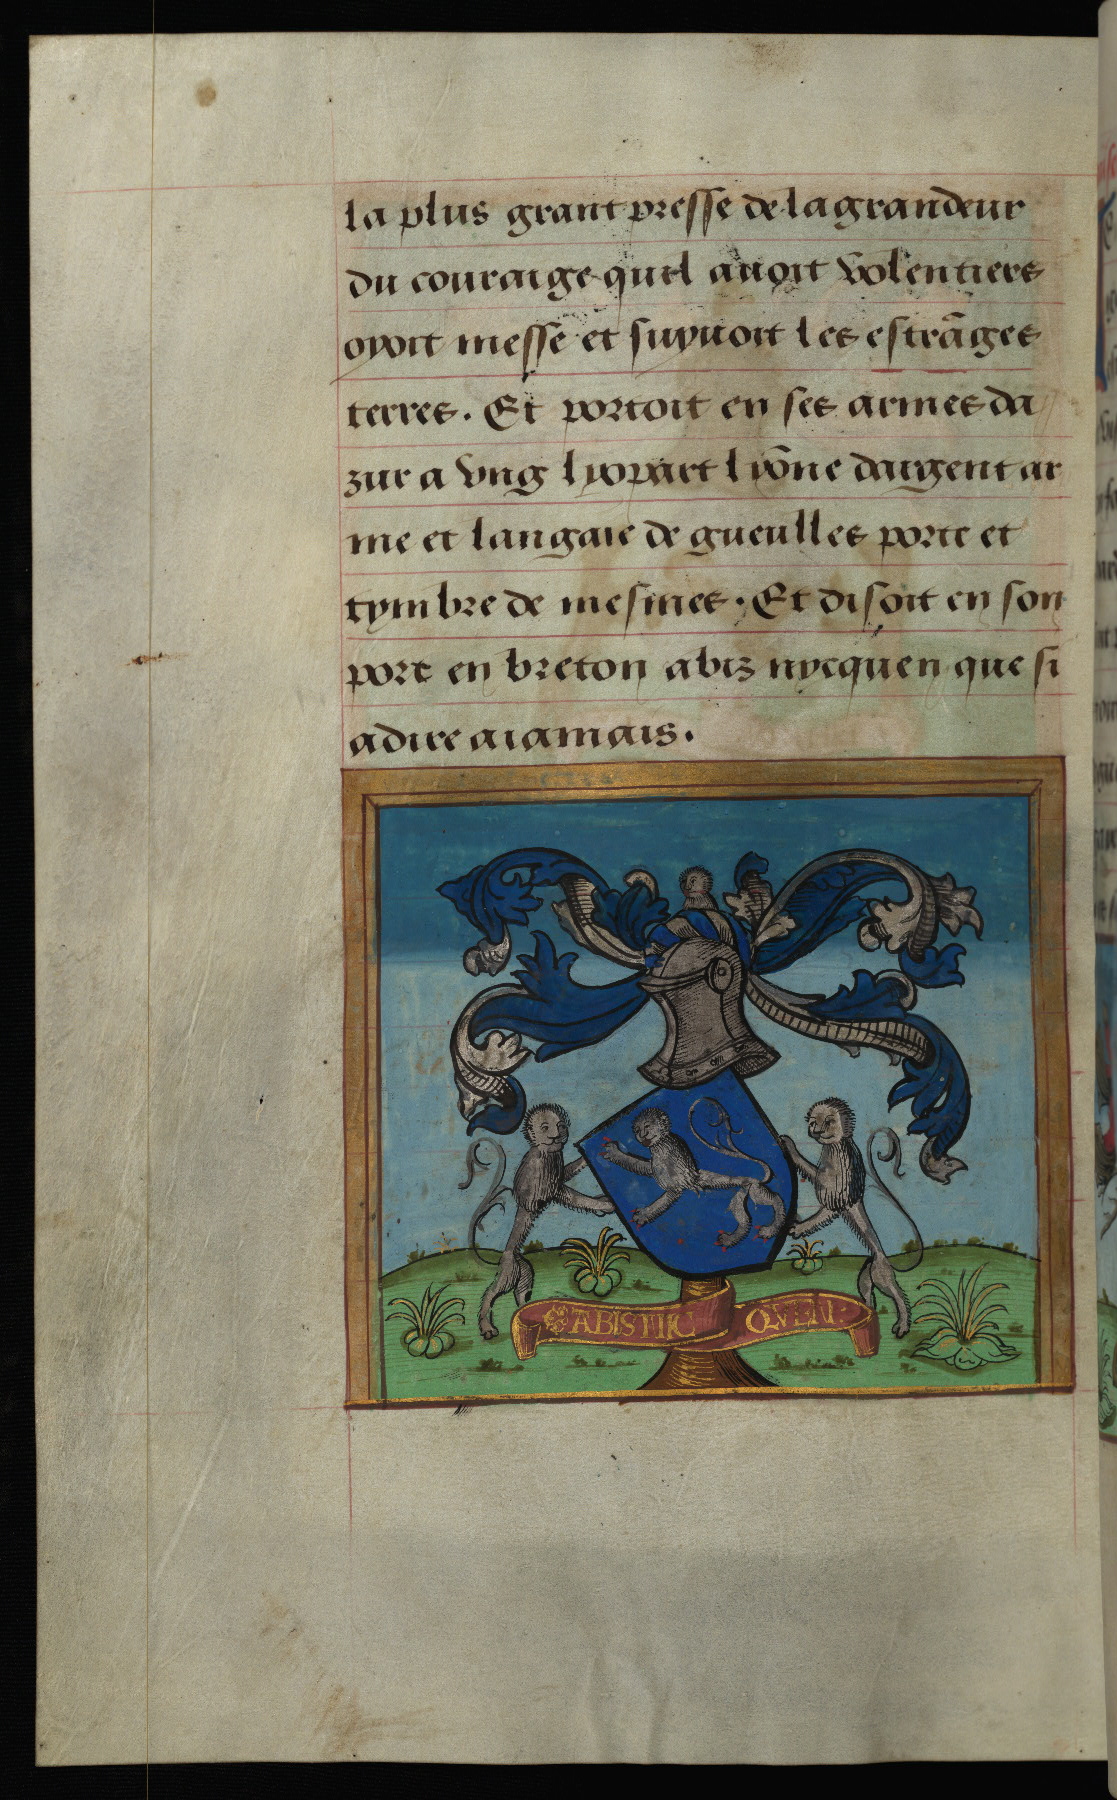 la plus grant presse de la grandeur
du couraige quel auoit volentiers
oyoit messe et suyuoit les estrãges
terres. Et portoit en ses armes da
zur a vng lyopart lyõne dargent ar
me et langaie de gueulles porte et
tymbre de mesmes. Et disoit en son
port en breton abiz nycquen que si
adire aiamais.
ABISNIC QVEN